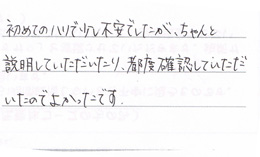 初めてのハリで少し不安でしたが、ちゃんと
説明していただいたり、都度確認していただ
いたのでよかったです.